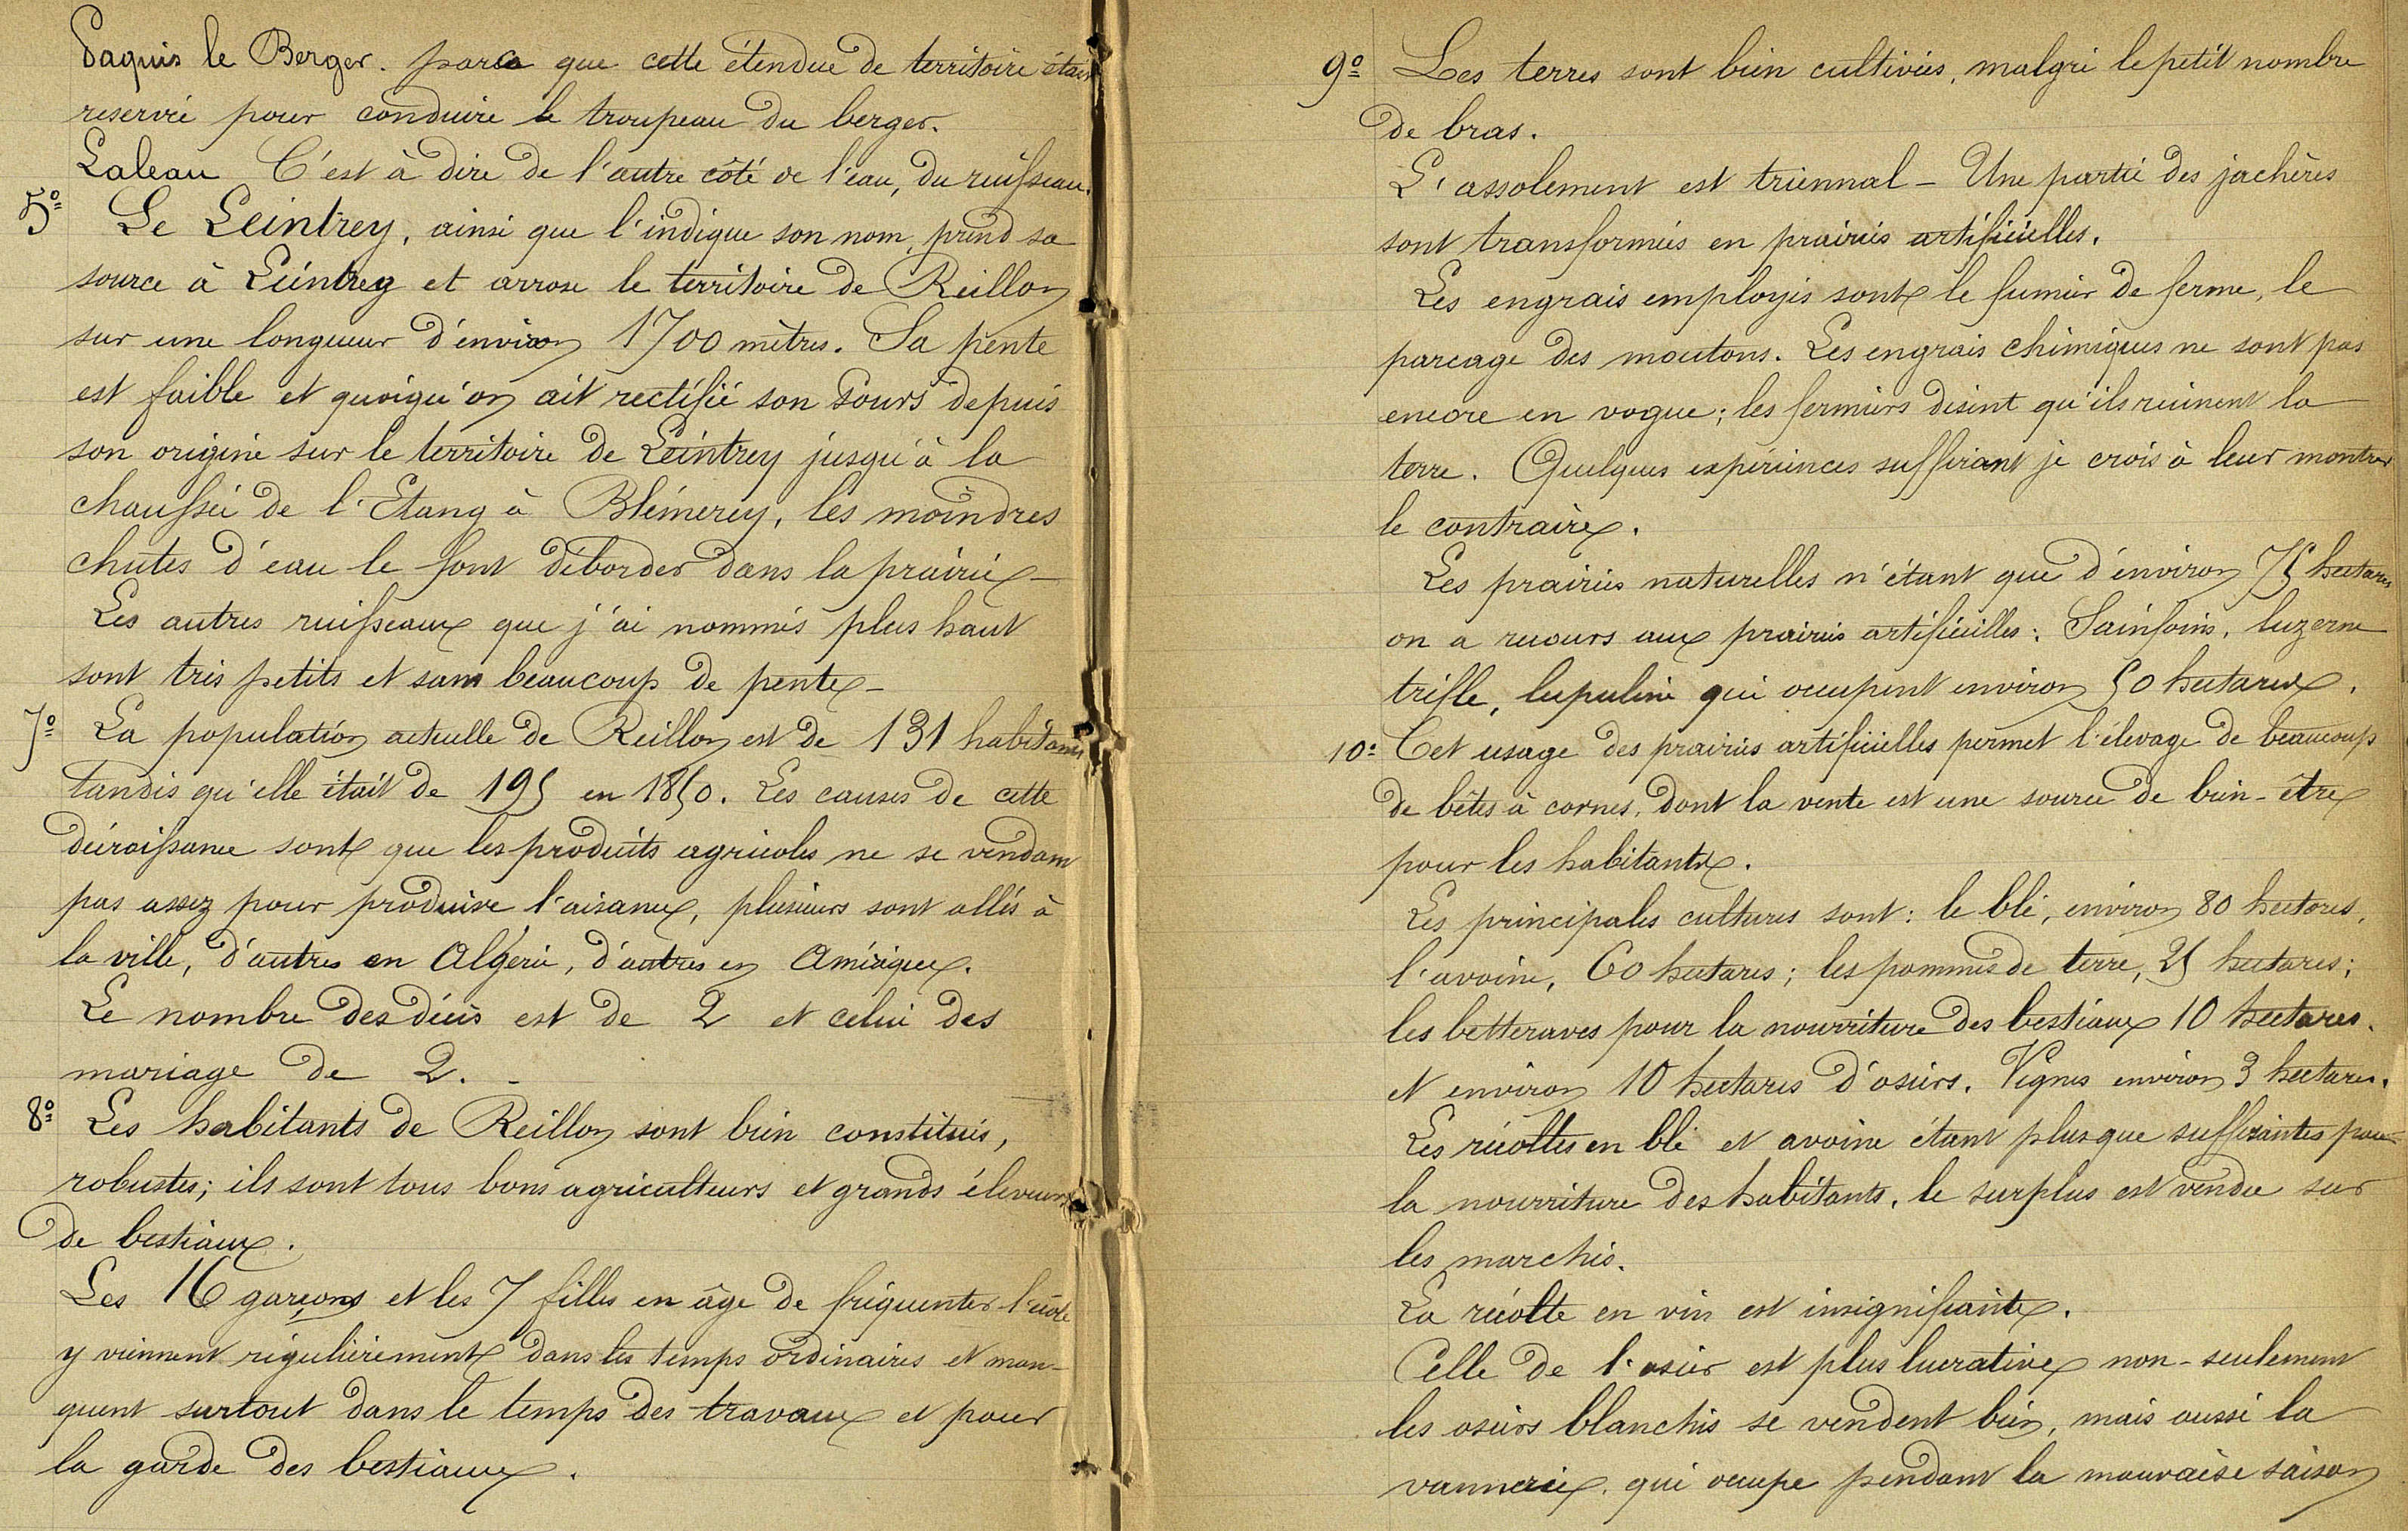 Paquis le Berger. parce que cette étendue de territoire était
reservée pour conduire le troupeau du berger.
Laleau C'est à dire de l'autre côté de l'eau, du ruisseau.
5º Le Leintrey, ainsi que l'indique son nom, prend sa
source à Leintrey et arrose le territoire de Reillon
sur une longueur d'environ 1700 mètres. Sa pente
est faible et quoiqu'on ait rectifié son cours depuis
son origine sur le territoire de Leintrey jusqu'à la
chaussée de l'Etang à Blémerey, les moindres
chutes d'eau le font déborder dans la prairie –
Les autres ruisseaux que j'ai nommés plus haut
sont très petits et sans beaucoup de pente –
7º La population actuelle de Reillon est de 131 habitants
tandis qu'elle était de 195 en 1850. Les causes de cette
décroissance sont que les produits agricoles ne se vendant
pas assez pour produire l'aisance, plusieurs sont allés à
la ville, d'autres en Algérie, d'autres en Amérique.
Le nombre des décès est de 2 et celui des
mariage de 2. –
8º Les habitants de Reillon sont bien constitués,
robustes; ils sont tous bons agriculteurs et grands éleveurs
de bestiaux.
Les 16 garçons et les 7 filles en âge de fréquenter l'école
y viennent régulièrement dans les temps ordinaires et man-
quent surtout dans le temps des travaux et pour
la garde des bestiaux.
9º Les terres sont bien cultivées, malgré le petit nombre
de bras.
L'assolement est triennal – Une partie des jachères
sont transformées en prairies artificielles.
Les engrais employés sont le fumier de ferme, le
parcage des moutons. Les engrais chimiques ne sont pas
encore en vogue; les fermiers disent qu'ils ruinent la
terre. Quelques expériences suffiraient je crois à leur montrer
le contraire.
Les prairies naturelles n'étant que d'environ 75 hectares
on a recours aux prairies artificielles: Sainfoins, luzerne
trèfle, lupuline qui occupent environ 50 hectares.
10º Cet usage des prairies artificielles permet l'élevage de beaucoup
de bêtes à cornes, dont la vente est une source de bien-être
pour les habitants.
Les principales cultures sont: le blé, environ 80 hectares,
l'avoine, 60 hectares; les pommes de terre, 25 hectares;
les betteraves pour la nourriture des bestiaux 10 hectares.
et environ 10 hectares d'osiers. Vignes environ 3 hectares.
Les récoltes en blé et avoine étant plus que suffisantes pour
la nourriture des habitants, le surplus est vendu sur
les marchés.
La récolte en vin est insignifiante.
Celle de l'osier est plus lucrative non-seulement
les osiers blanchis se vendent bien, mais aussi la
vannerie, qui occupe pendant la mauvaise saison